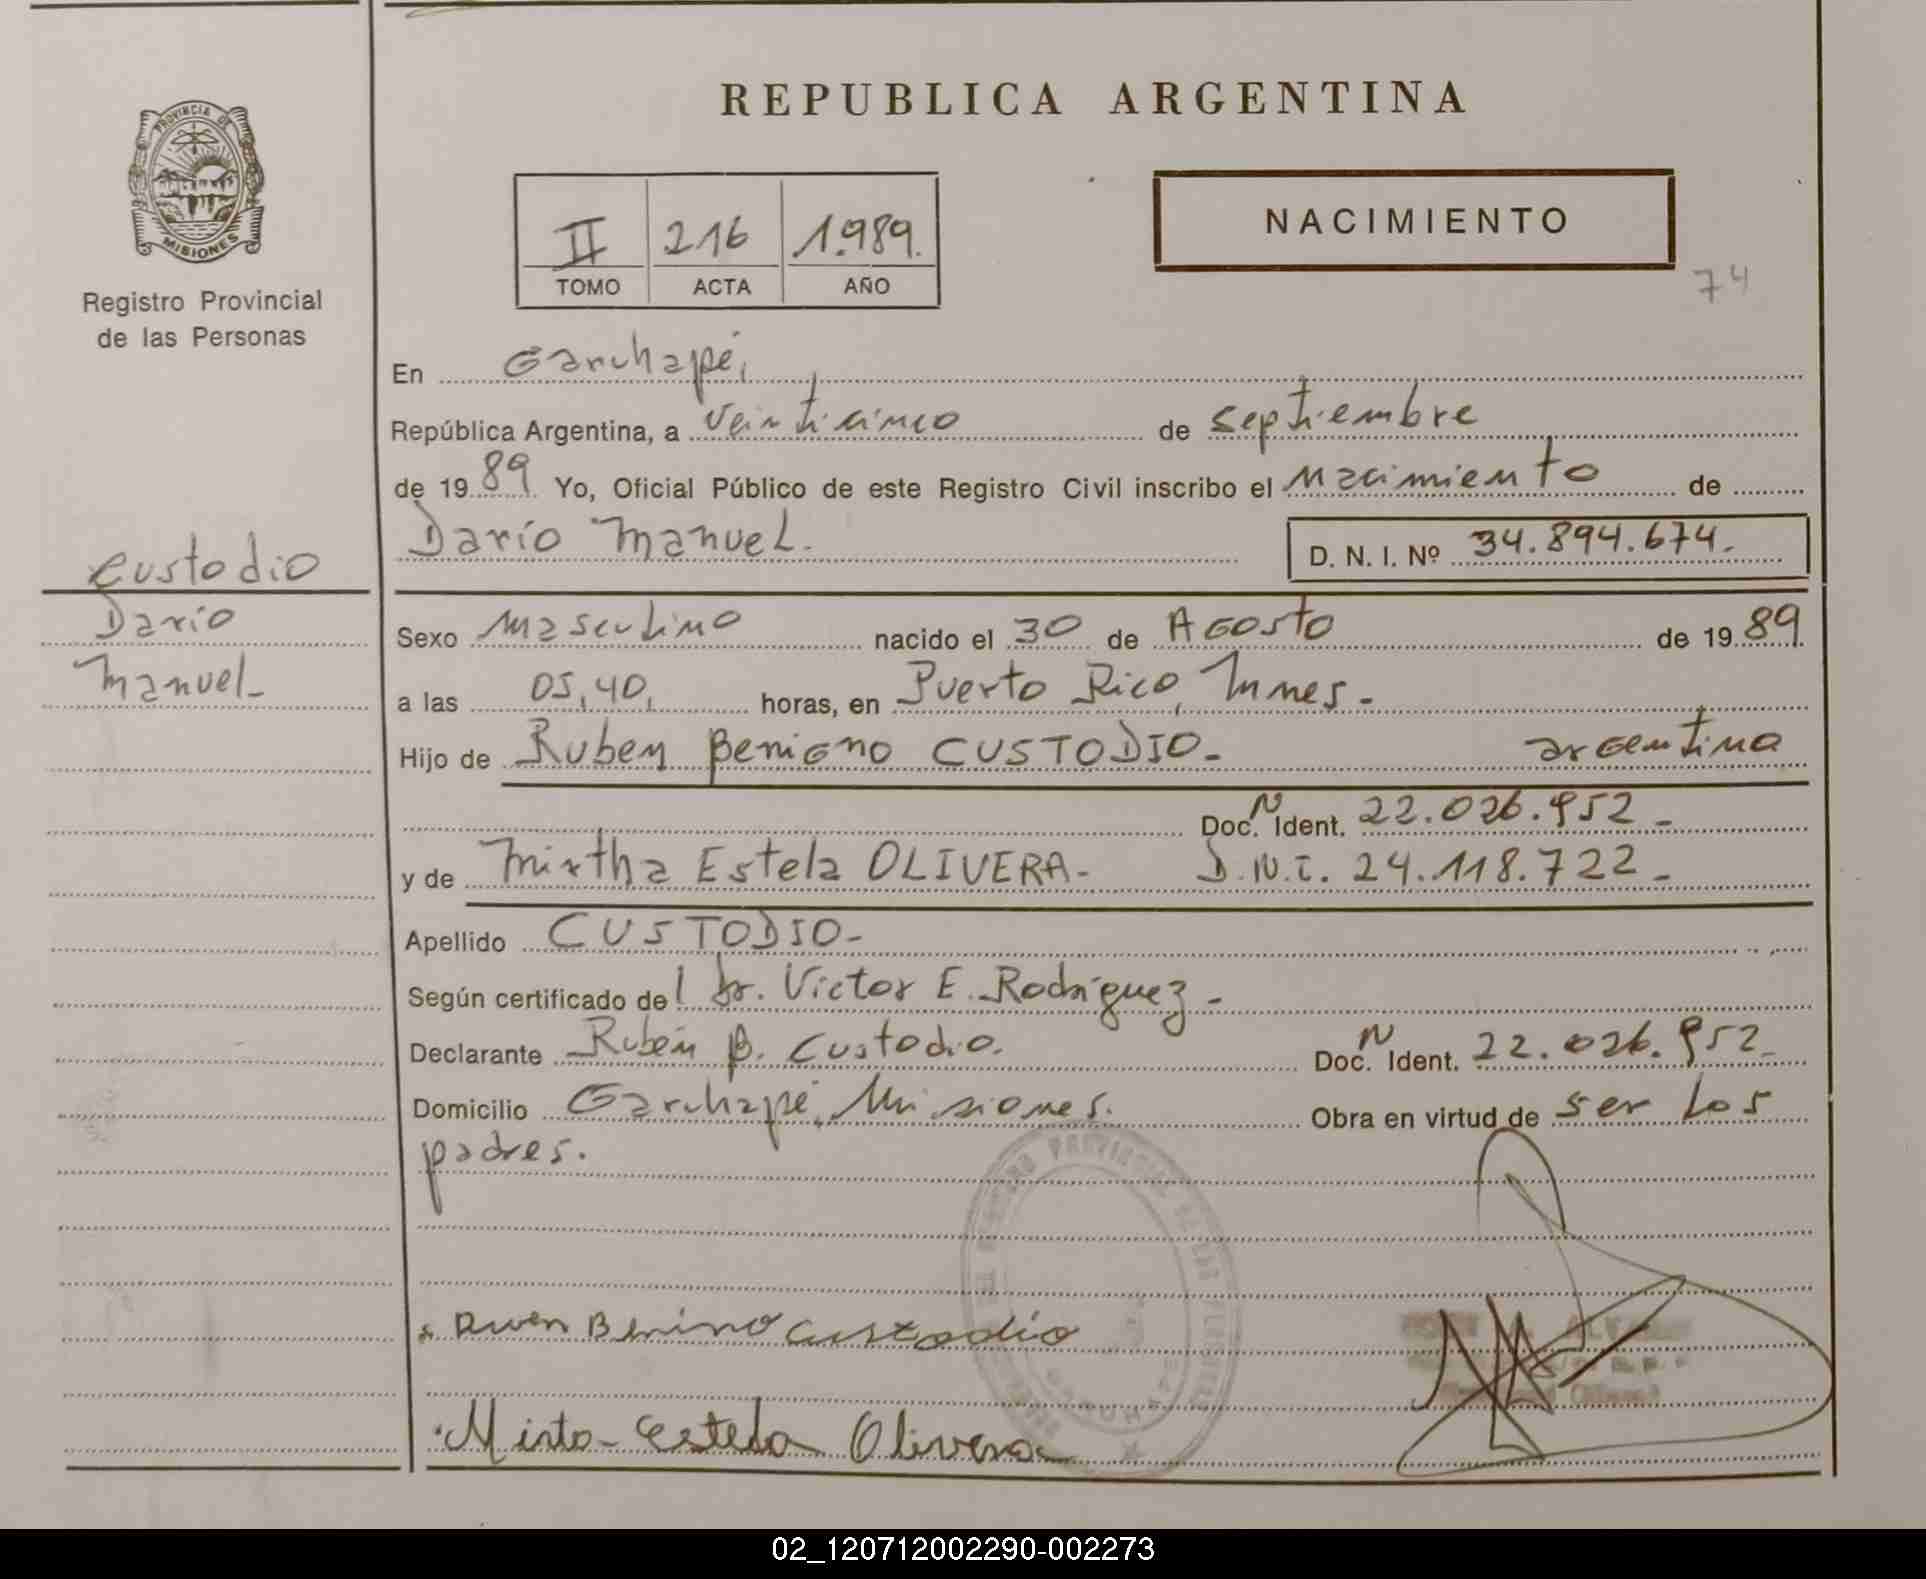 REPUBLICA ARGENTINA
PROVINCIA DE
MISIONES
Registro Provincial
de las Personas
II 216 1.989.
TOMO ACTA AÑO
NACIMIENTO
74
En Garuhapé,
República Argentina, a veinticinco de septiembre
de 1989 Yo, Oficial Público de este Registro Civil inscribo el nacimiento de
Darío Manuel. D. N. I. Nº 34.894.674.
Custodio
Darío
Manuel-
Sexo masculino nacido el 30 de Agosto de 1989
a las 05,40, horas, en Puerto Rico, Mnes.-
Hijo de Ruben Benigno CUSTODIO- argentino
Doc. N Ident. 22.026.952-
y de Mirtha Estela OLIVERA- D.N.I. 24.118.722-
Apellido CUSTODIO-
Según certificado del Dr. Victor E. Rodríguez-
Declarante Rubén B. Custodio. Doc. N Ident. 22.026.952-
Domicilio Garuhapé, Misiones. Obra en virtud de ser los
padres.
Benino Custodio
Mirta Estela Olivera
02_120712002290-002273